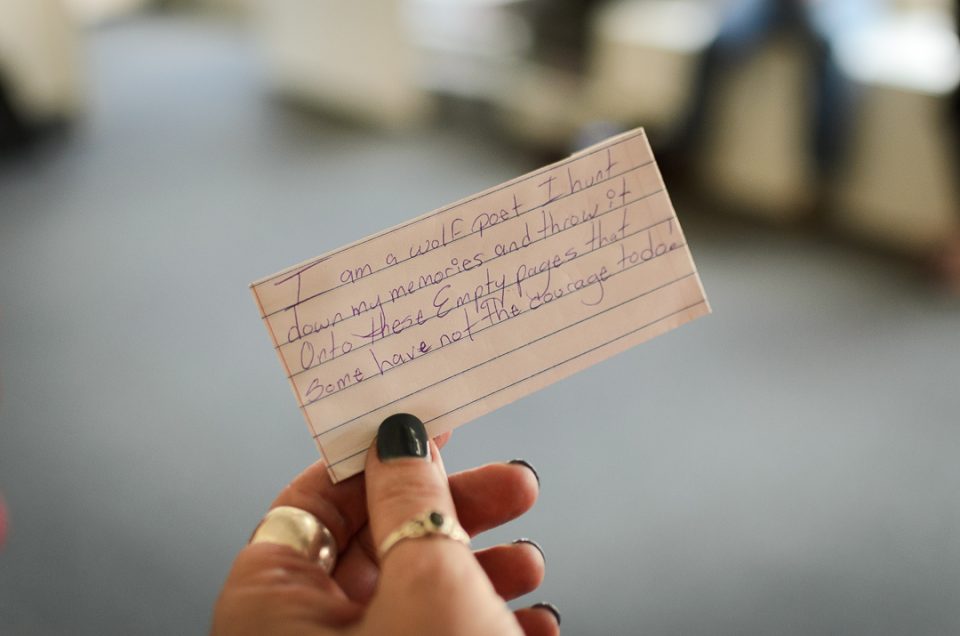 I am a wolf poet I hunt
down my memories and throw it
Onto these Empty pages that
Some have not the courage todoe!